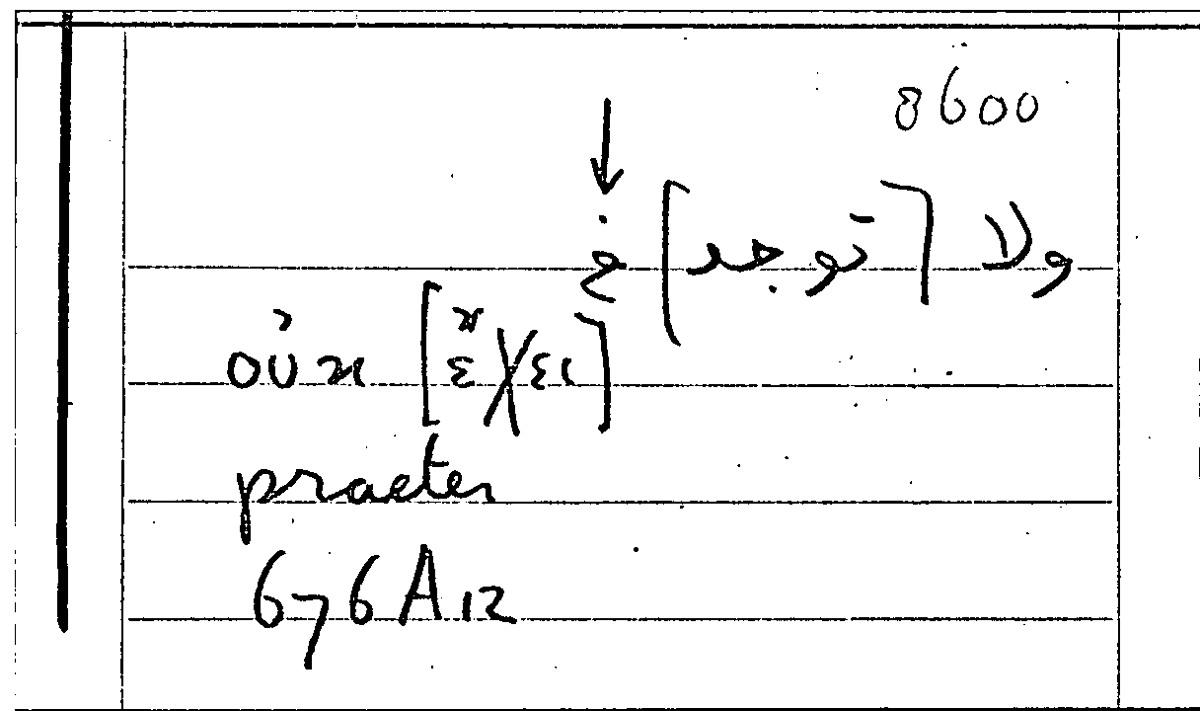 8600
↓
ولا [توجد] غ
οὐκ [ἔχει]
praeter
676 A 12